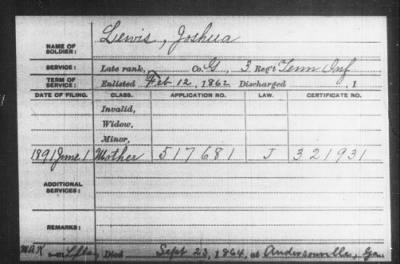 NAME OF SOLDIER: Lewis, Joshua
SERVICE: Late rank, Co. G, 3 Reg't Tenn Inf
TERM OF SERVICE: Enlisted Feb 12, 1862 Discharged , 1
DATE OF FILING. CLASS. APPLICATION NO. LAW. CERTIFICATE NO.
Invalid,
Widow,
Minor,
1891 June 1 Mother 517681 J 321931
ADDITIONAL SERVICES:
REMARKS:
Died Sept 23, 1864, at Andersonville, Ga.